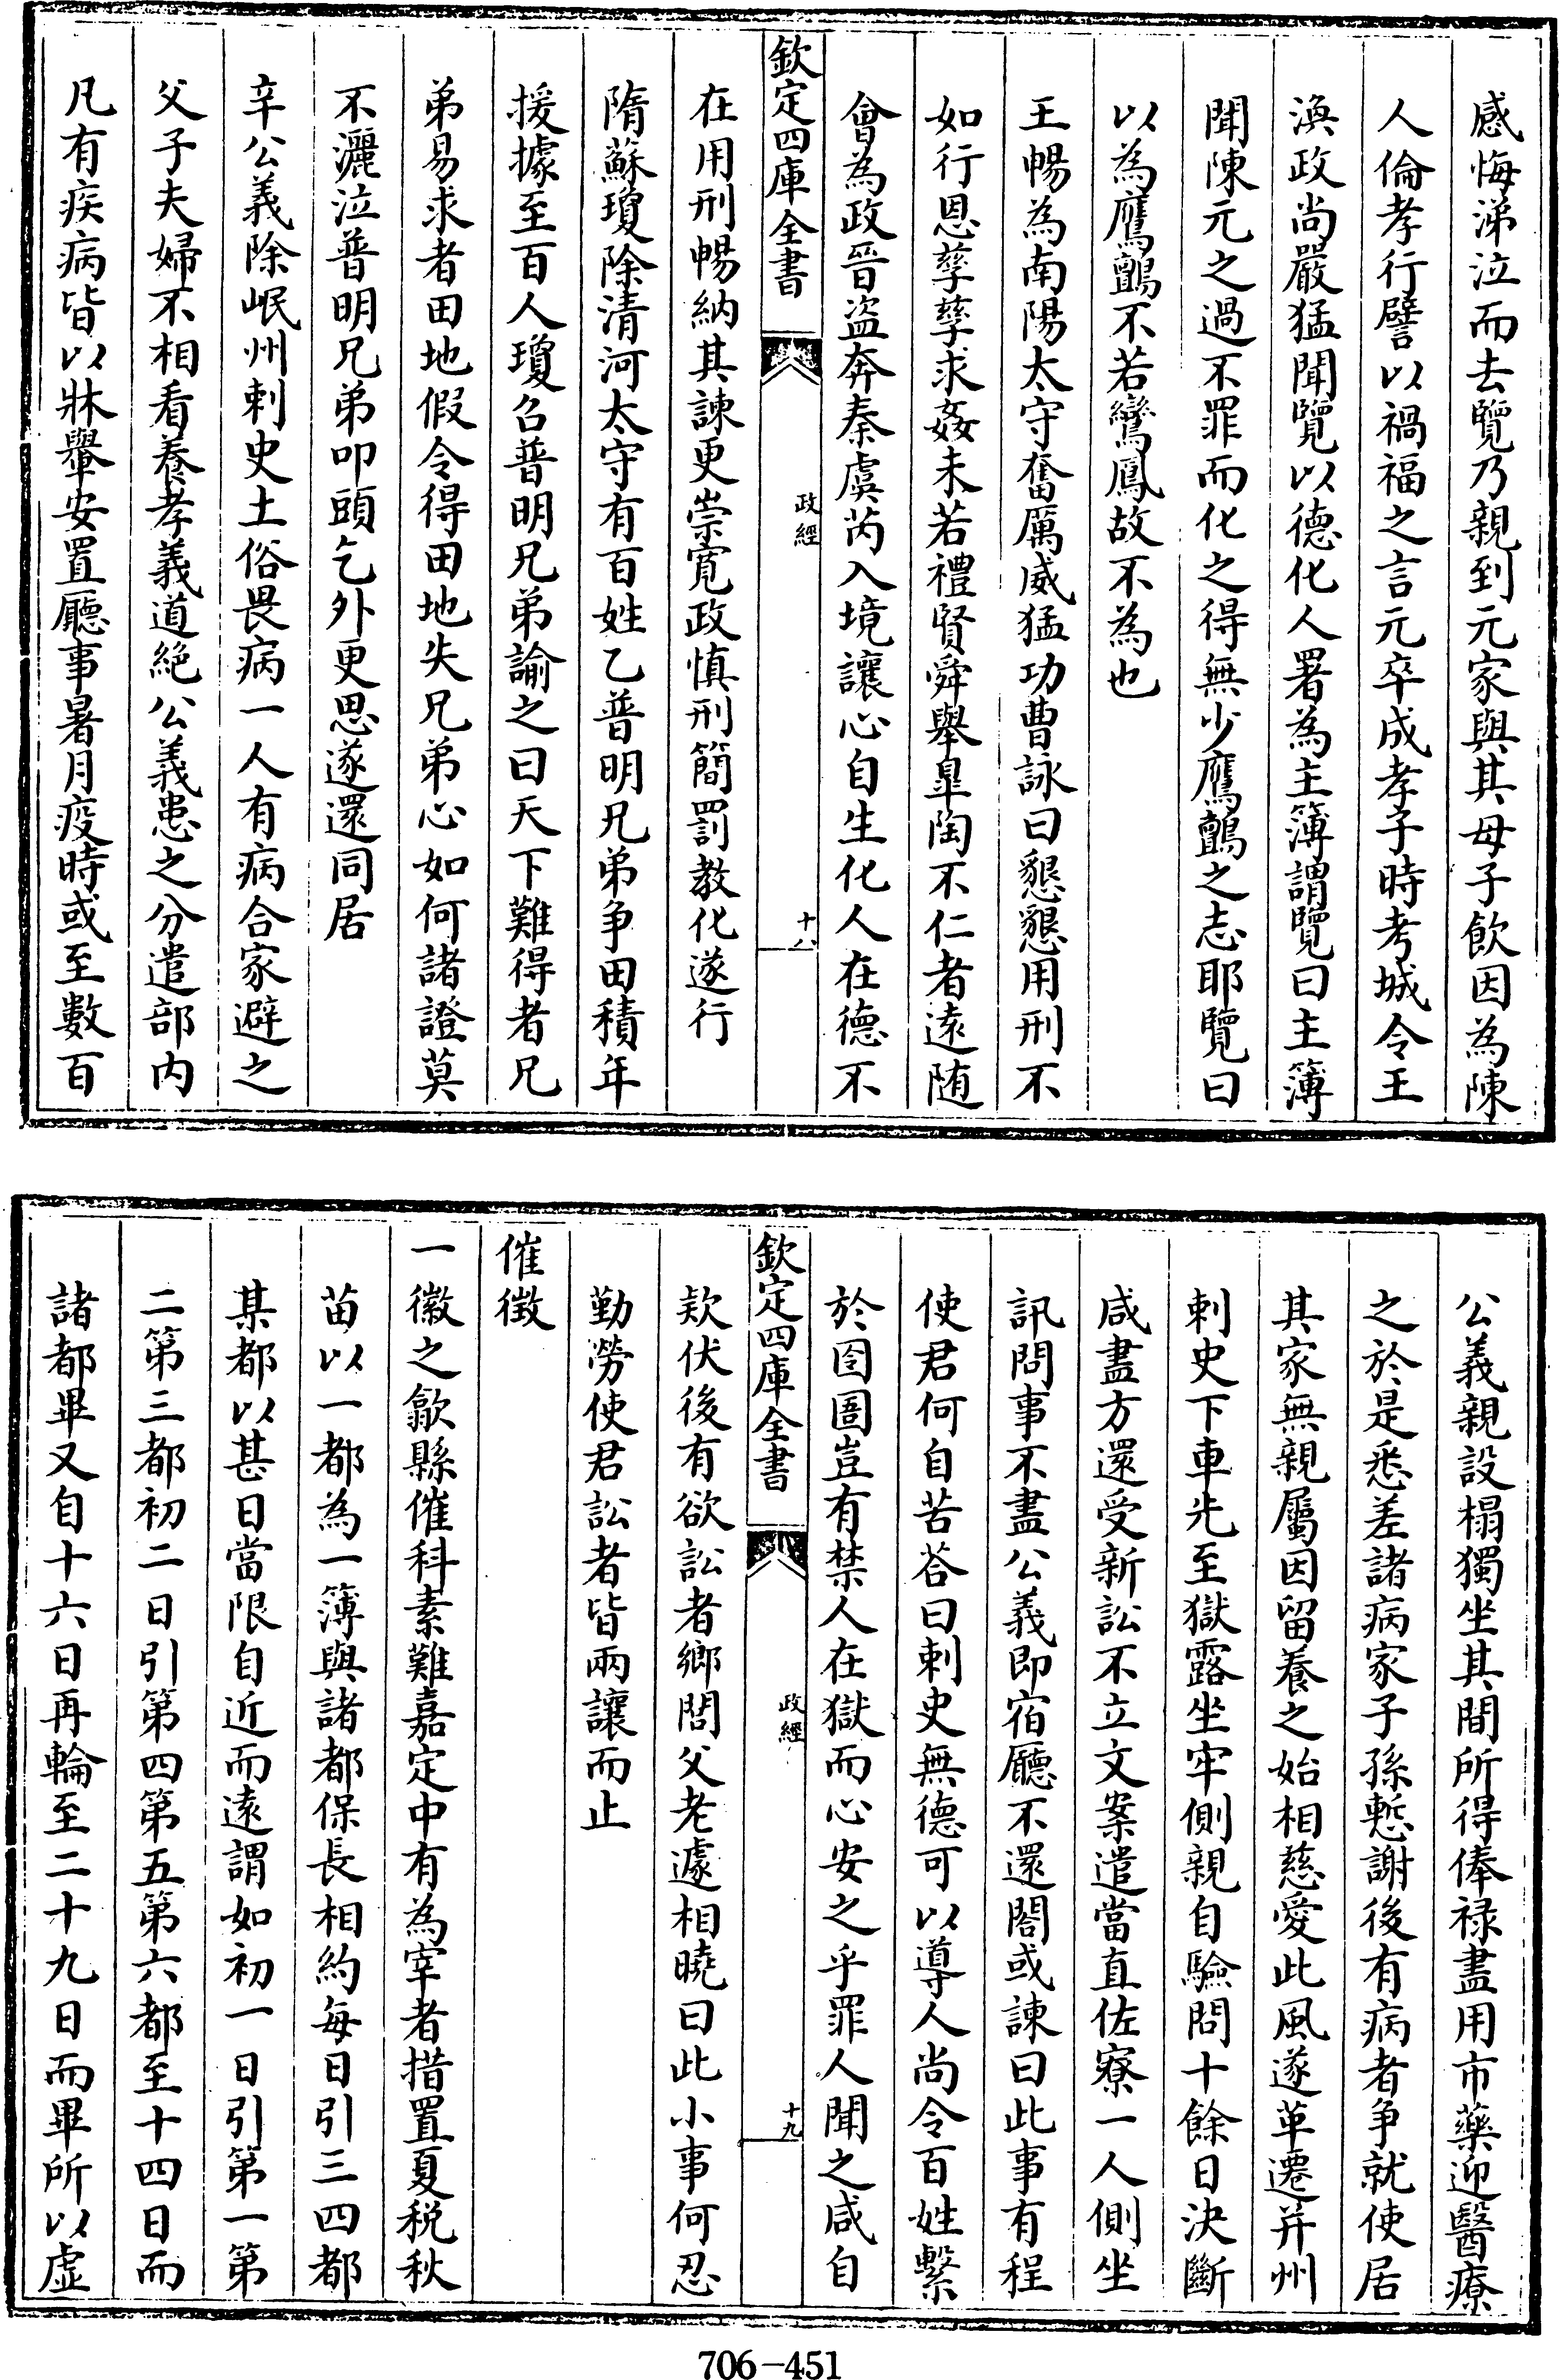 感悔涕泣而去覽乃親到元家與其母子飲因為陳
人倫孝行譬以禍福之言元卒成孝子時考城令王
渙政尚嚴猛聞覽以德化人署為主簿謂覽曰主簿
聞陳元之過不罪而化之得無少鷹鸇之志耶覽曰
以為鷹鸇不若鸞鳳故不為也
王暢為南陽太守奮厲威猛功曹詠曰懇懇用刑不
如行恩孳孳求姦未若禮賢舜舉臯陶不仁者逺随
會為政晉盗奔秦虞芮入境讓心自生化人在德不
欽定四庫全書
政經
十八
在用刑暢納其諫更崇寛政慎刑簡罰教化遂行
隋蘇瓊除清河太守有百姓乙普明兄弟争田積年
援據至百人瓊召普明兄弟諭之曰天下難得者兄
弟易求者田地假令得田地失兄弟心如何諸證莫
不灑泣普明兄弟叩頭乞外更思遂還同居
辛公義除岷州刺史土俗畏病一人有病合家避之
父子夫婦不相看養孝義道絶公義患之分遣部内
凡有疾病皆以牀轝安置廳事暑月疫時或至數百
公義親設榻獨坐其間所得俸禄盡用市藥迎醫療
之於是悉差諸病家子孫慙謝後有病者争就使居
其家無親屬因留養之始相慈愛此風遂革遷并州
刺史下車先至獄露坐牢側親自驗問十餘日決斷
咸盡方還受新訟不立文案遣當直佐寮一人側坐
訊問事不盡公義即宿廳不還閤或諫曰此事有程
使君何自苦荅曰刺史無德可以導人尚令百姓繫
於囹圄豈有禁人在獄而心安之乎罪人聞之咸自
欽定四庫全書
政經
十九
欵伏後有欲訟者鄉閭父老遽相曉曰此小事何忍
勤勞使君訟者皆兩讓而止
催徴
一徽之歙縣催科素難嘉定中有為宰者措置夏税秋
苗以一都為一簿與諸都保長相約每日引三四都
某都以甚日當限自近而逺謂如初一日引第一第
二第三都初二日引第四第五第六都至十四日而
諸都畢又自十六日再輪至二十九日而畢所以虚
706-451